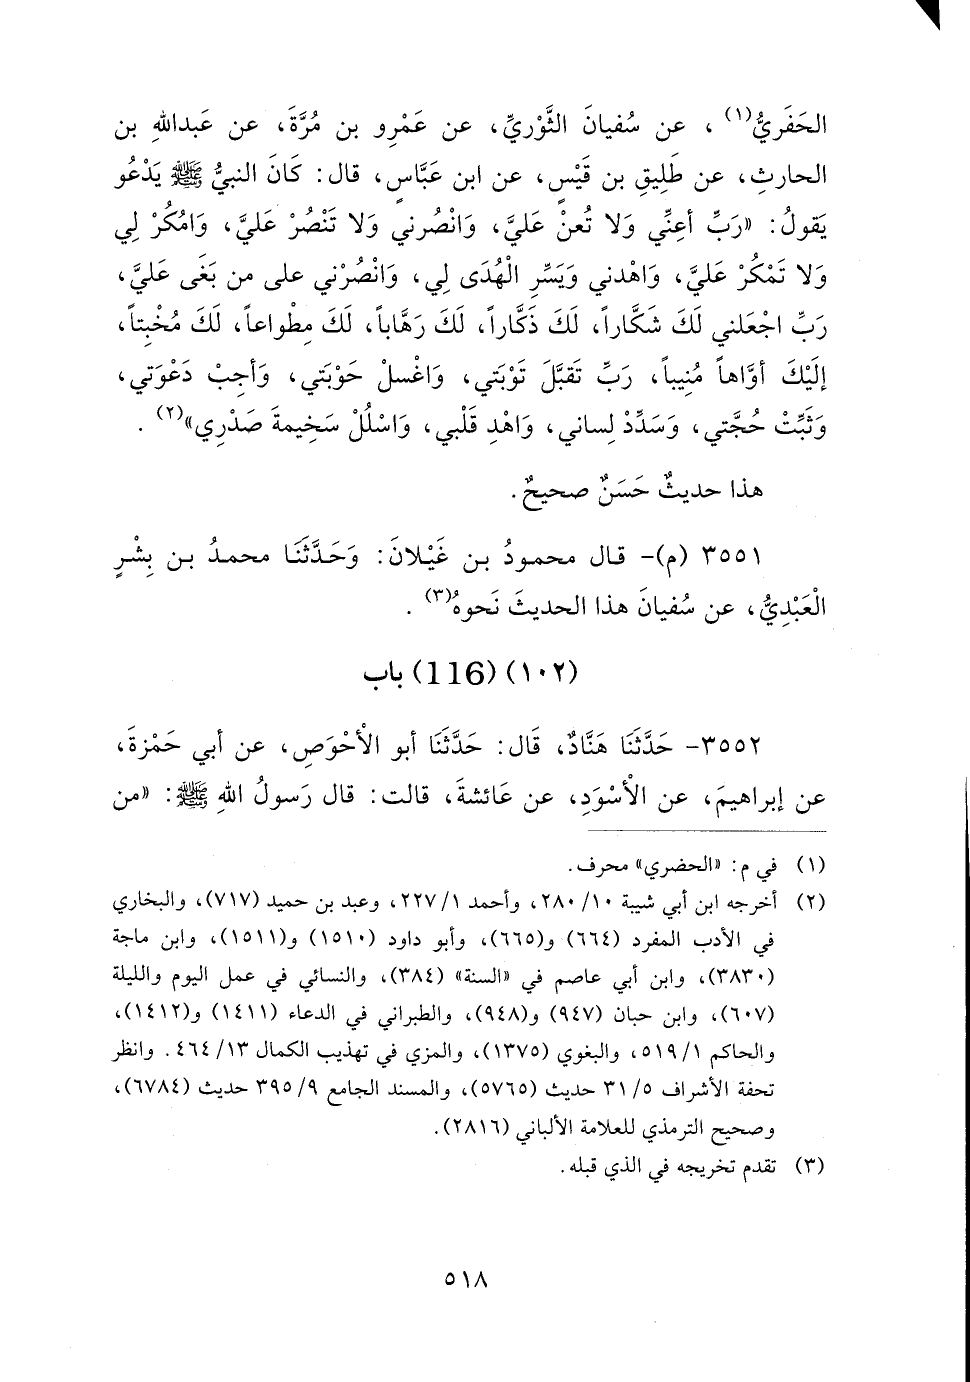 الحَفَريُّ(١) ، عن سُفيانَ الثَّوْريِّ، عن عَمْرِو بن مُرَّةَ، عن عَبداللهِ بن
الحارثِ، عن طَلِيقِ بن قَيْسٍ، عن ابن عَبَّاسٍ، قال: كَانَ النبيُّ ﷺ يَدْعُو
يَقولُ: «رَبِّ أعِنِّي وَلا تُعنْ عَليَّ، وَانْصُرني وَلا تَنْصُرْ عَليَّ، وَامْكُرْ لِي
وَلا تَمْكُرْ عَليَّ، وَاهْدني وَيَسِّرِ الْهُدَى لِي، وَانْصُرْني على من بَغَى عَليَّ،
رَبِّ اجْعَلني لَكَ شَكَّاراً، لَكَ ذَكَّاراً، لَكَ رَهَّاباً، لَكَ مِطْواعاً، لَكَ مُخْبِتاً،
إلَيْكَ أوَّاهاً مُنِيباً، رَبِّ تَقبَّلَ تَوْبَتي، وَاغْسلْ حَوْبَتي، وَأجِبْ دَعْوَتي،
وَثَبِّتْ حُجَّتي، وَسَدِّدْ لِساني، وَاهْدِ قَلْبي، وَاسْلُلْ سَخِيمةَ صَدْرِي»(٢) .
هذا حديثٌ حَسَنٌ صحيحٌ.
٣٥٥١ (م)- قال محمودُ بن غَيْلانَ: وَحَدَّثَنَا محمدُ بن بِشْرٍ
الْعَبْدِيُّ، عن سُفيانَ هذا الحديثَ نَحوهُ(٣) .
(١٠٢) (116) باب
٣٥٥٢- حَدَّثَنَا هَنَّادٌ، قَال: حَدَّثَنَا أبو الأحْوَصِ، عن أبي حَمْزةَ،
عن إبراهيمَ، عن الأسْوَدِ، عن عَائشةَ، قالت: قال رَسولُ اللهِ ﷺ: «من
(١) في م: «الحضري» محرف.
(٢) أخرجه ابن أبي شيبة ١٠/ ٢٨٠، وأحمد ١/ ٢٢٧، وعبد بن حميد (٧١٧)، والبخاري
في الأدب المفرد (٦٦٤) و(٦٦٥)، وأبو داود (١٥١٠) و(١٥١١)، وابن ماجة
(٣٨٣٠)، وابن أبي عاصم في «السنة» (٣٨٤)، والنسائي في عمل اليوم والليلة
(٦٠٧)، وابن حبان (٩٤٧) و(٩٤٨)، والطبراني في الدعاء (١٤١١) و(١٤١٢)،
والحاكم ١/ ٥١٩، والبغوي (١٣٧٥)، والمزي في تهذيب الكمال ١٣/ ٤٦٤ . وانظر
تحفة الأشراف ٥/ ٣١ حديث (٥٧٦٥)، والمسند الجامع ٩/ ٣٩٥ حديث (٦٧٨٤)،
وصحيح الترمذي للعلامة الألباني (٢٨١٦).
(٣) تقدم تخريجه في الذي قبله.
٥١٨